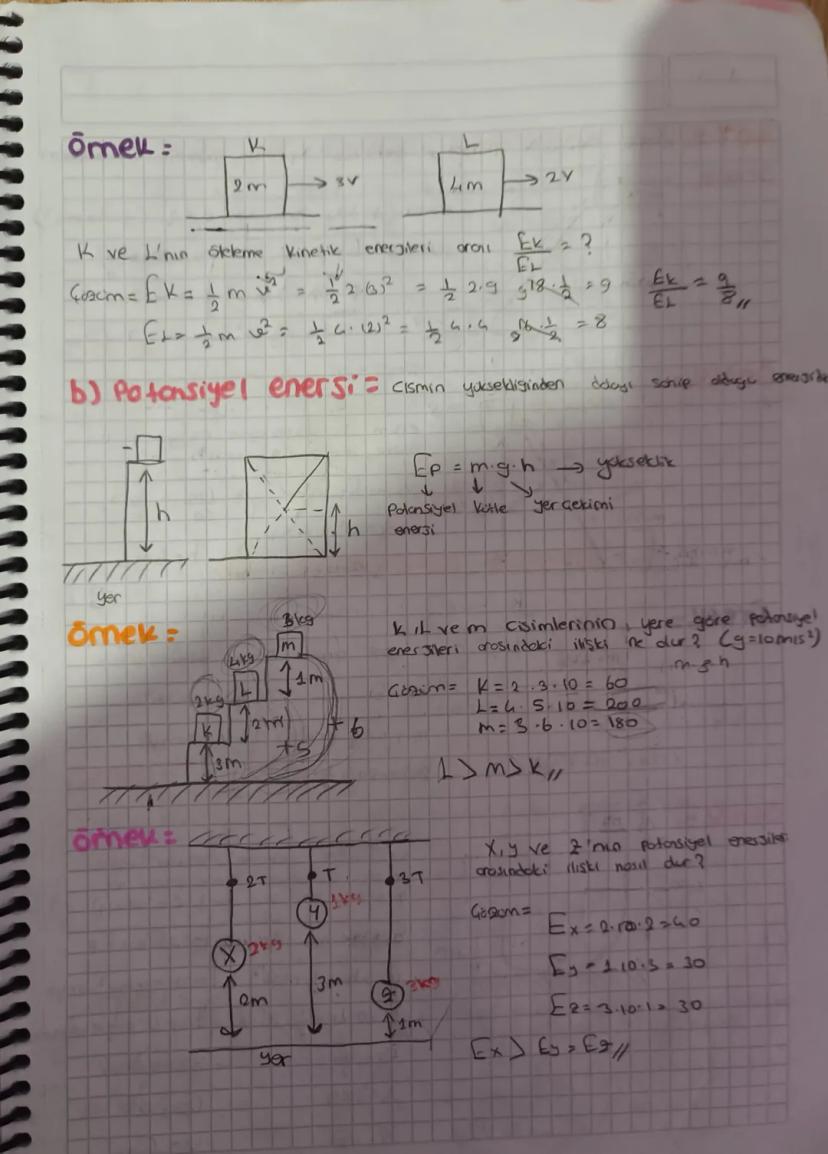 Örnek =
K
L
2m → 3V
4m → 2V
K ve L'nin öteleme kinetik enerjileri oranı EK/EL = ?
Çözüm = EK = 1/2 m v² = 1/2 2 (3)² = 1/2 2.9 18.1/2 = 9 EK/EL = 9/8 //
EL = 1/2 m v² = 1/2 4.(2)² = 1/2 4.4 16.1/2 = 8
b) Potansiyel enersi = Cismin yüksekliğinden dolayı sahip olduğu
h
h
yer
Ep = m.g.h → yükseklik
Potansiyel Kütle yer çekimi
enersi
Örnek =
3kg
m
4kg
L
1m
2kg
K
2m
3m
+5
+6
K, L ve m cisimlerinin yere göre potansiyel
enersileri arasındaki ilişki ne dur? (g=10m/s²)
m.g.h
Çözüm = K = 2.3.10 = 60
L = 4.5.10 = 200
m = 3.6.10 = 180
L > m > K //
Örnek =
2T
T
3T
X 2kg
Y 1kg
Z 3kg
2m
3m
1m
yer
X, y ve z'nin potansiyel
arasındaki ilişki nasıl dur?
Çözüm =
Ex = 2.10.2 = 40
Ey = 1.10.3 = 30
Ez = 3.10.1 = 30
Ex > Ey = Ez //